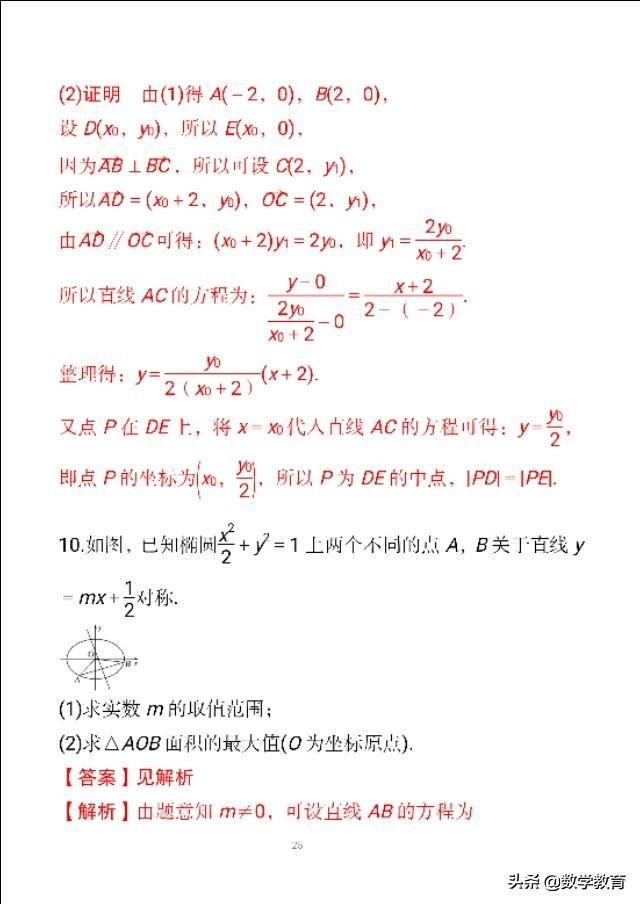 (2)证明 由(1)得 A(－2，0)，B(2，0)，
设 D(x₀，y₀)，所以 E(x₀，0)，
因为AB⃗⊥BC⃗，所以可设 C(2，y₁)，
所以AD⃗＝(x₀＋2，y₀)，OC⃗＝(2，y₁)，
由AD⃗∥OC⃗可得：(x₀＋2)y₁＝2y₀，即 y₁＝2y₀/(x₀＋2).
所以直线 AC的方程为：(y－0)/(2y₀/(x₀＋2)－0)＝(x＋2)/(2－（－2）).
整理得：y＝y₀/(2（x₀＋2）)(x＋2).
又点 P在 DE上，将 x＝x₀代入直线 AC的方程可得：y＝y₀/2，
即点 P的坐标为(x₀，y₀/2)，所以 P为 DE的中点，|PD|＝|PE|.
10.如图，已知椭圆x²/2＋y²＝1上两个不同的点 A，B关于直线 y
＝mx＋1/2对称.
y
O
B x
A
(1)求实数 m的取值范围；
(2)求△AOB面积的最大值(O为坐标原点).
【答案】见解析
【解析】由题意知 m≠0，可设直线 AB的方程为
26
头条 @数学教育